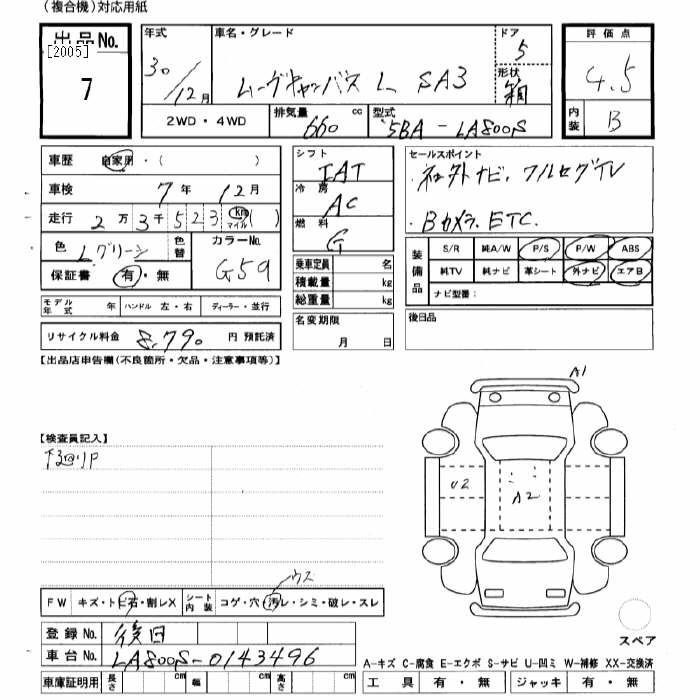 (複合機)対応用紙
出品No. [2005] 7
年式 30/12月
車名・グレード ムーヴキャンバス L SA3
ドア 5
形状 箱
評価点 4.5
内装 B
2WD・4WD
排気量 660 cc
型式 5BA-LA800S
車歴 自家用・( )
車検 7年 12月
走行 2万3千523 km マイル ( )
色 Lグリーン 色替
カラーNo. G59
保証書 有・無
モデル年式 年 ハンドル 左・右 ディーラー・並行
リサイクル料金 8,790 円 預託済
シフト IAT
冷房 AC
燃料 G
乗車定員 名
積載量 kg
総重量 kg
名変期限 月 日
セールスポイント
・社外ナビ、フルセグTV
・Bカメラ、ETC
装備品 S/R 純A/W P/S P/W ABS
純TV 純ナビ 革シート 外ナビ エアB
ナビ型番:
後日品
【出品店申告欄(不良箇所・欠品・注意事項等)】
A1
【検査員記入】
下回りP
U2
A2
ウス
FW キズ・トビ石・割レX シート内装 コゲ・穴・汚レ・シミ・破レ・スレ
登録No. 後日
車台No. LA800S-0143496
スペア
A-キズ C-腐食 E-エクボ S-サビ U-凹ミ W-補修 XX-交換済
車庫証明用 長さ cm 幅 cm 高さ cm
工具 有・無 ジャッキ 有・無